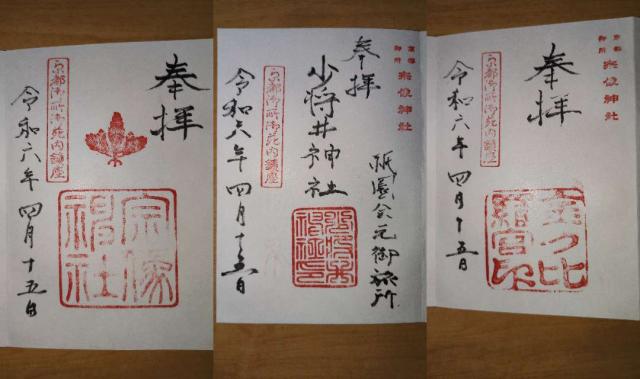 奉拝
京都御所御苑内鎮座
宗像神社
令和六年四月十五日
京都御所
宗像神社
奉拝
祇園会元御旅所
小将井神社
京都御所御苑内鎮座
令和六年四月十五日
京都御所
宗像神社
奉拝
京都御所御苑内鎮座
金刀比羅宮印
令和六年四月十五日